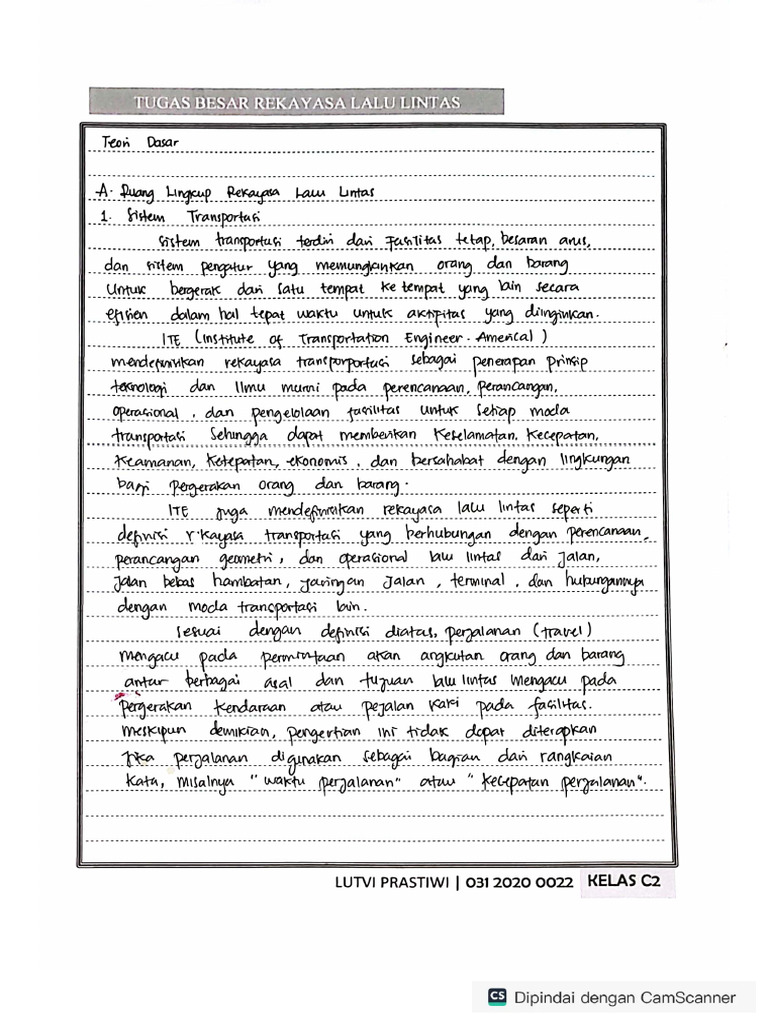 TUGAS BESAR REKAYASA LALU LINTAS
Teori Dasar
A. Ruang Lingkup Rekayasa Lalu Lintas
1. Sistem Transportasi
Sistem transportasi terdiri dari Fasilitas tetap, besaran arus,
dan sistem pengatur yang memungkinkan orang dan barang
Untuk bergerak dari satu tempat ke tempat yang lain secara
efisien dalam hal tepat waktu untuk aktifitas yang diinginkan.
ITE (Institute of Transportation Engineer. Americal)
mendefinisikan rekayasa transporportasi sebagai penerapan prinsip
teknologi dan Ilmu murni pada perencanaan, perancangan,
operasional, dan pengelolaan fasilitas untuk setiap moda
transportasi Sehingga dapat memberikan Keselamatan. Kecepatan,
Keamanan, Ketepatan, ekonomis, dan bersahabat dengan lingkungan
bagi pergerakan orang dan barang.
ITE juga mendefinisikan rekayasa lalu lintas seperti
definisi r'kayasa transportasi yang berhubungan dengan perencanaan,
perancangan geometri, dan operasional lalu lintas dari jalan,
Jalan bebas hambatan, jaringan jalan, terminal, dan hubungannya
dengan moda transportasi lain.
Sesuai dengan definisi diatas, perjalanan (travel)
mengacu pada permintaan akan angkutan orang dan barang
antar berbagai asal dan tujuan lalu lintas mengacu pada
pergerakan Kendaraan atau pejalan kaki pada fasilitas.
Meskipun demikian, pengertian ini tidak dapat diterapkan
jika perjalanan digunakan sebagai bagian dari rangkaian
Kata, misalnya "waktu perjalanan" atau "Kecepatan perjalanan".
LUTVI PRASTIWI | 031 2020 0022 KELAS C2
CS Dipindai dengan CamScanner